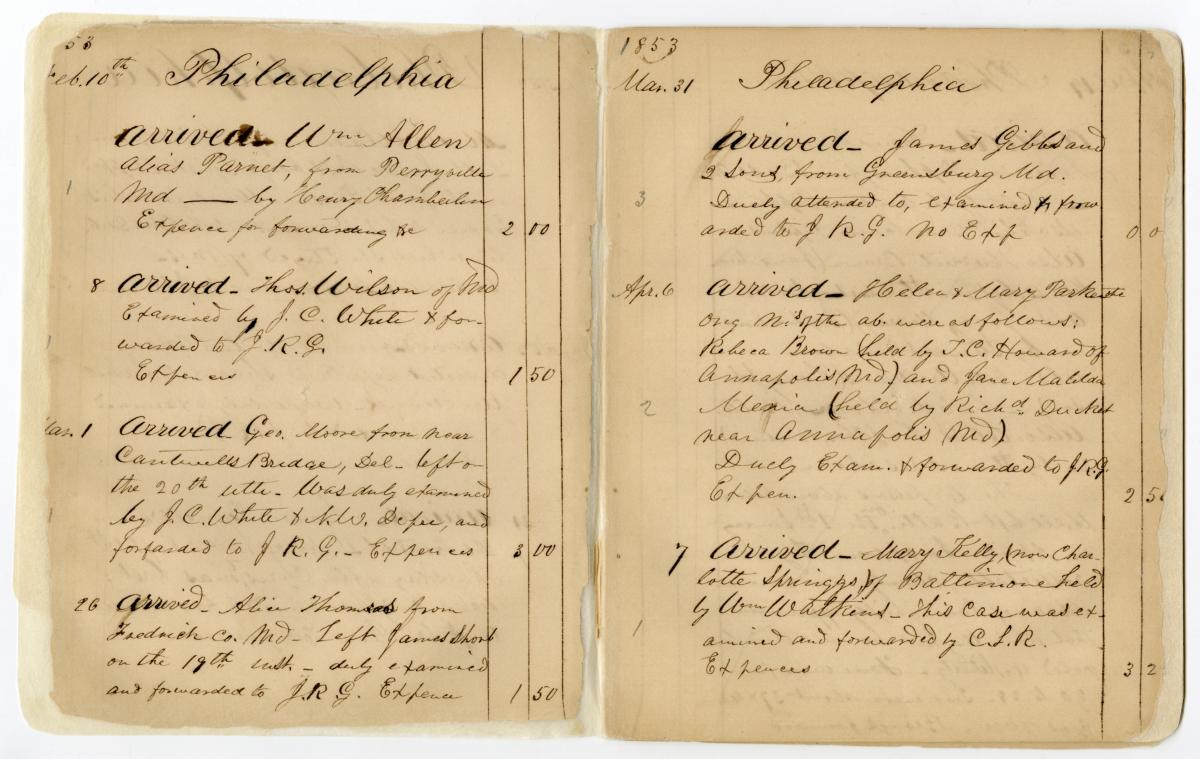 53
Feb. 10th Philadelphia
arrived - Wm Allen
alias Parnet, from Perryville
1
Md — by Henry Chamberlin
Expence for forwarding &c 2 00
8 arrived - Thos. Wilson of Md
Examined by J. C. White & for-
warded to J. R. G.
1
Expences 1 50
Mar. 1 arrived Geo. Moore from near
Cantwells Bridge, Del - left on
the 20th ulte - Was duly examined
1 by J. C. White & N. W. Depee, and
forfarded to J R. G. - Expences 3 00
26 arrived - Alice Thomas from
Fredrick Co. Md - Left James Short
on the 19th inst. - duly examined
and forwarded to J. R. G. Expence 1 50
1853
Mar. 31 Philadelphia
arrived - James Gibbs and
2 sons, from Greensburg Md.
3
Duely attended to, examined & frow
arded to J R. G. No Exp 0 0
Apr. 6 arrived - Helen & Mary Parker the
Orig Ns of the ab. were as follows:
Rebeca Brown (held by T. C. Howard of
Annapolis Md) and Jane Matilda
2 (held by Richd. Ducket
near Annapolis Md)
Duely Exam. & forwarded to J. R. G.
Expen. 2 5
7 Arrived - Mary Kelly, (now Char-
lotte Spriggs,) of Baltimore held
by Wm Watkins - this case was ex-
1
amined and forwarded by C. L. R.
Expences 3 2